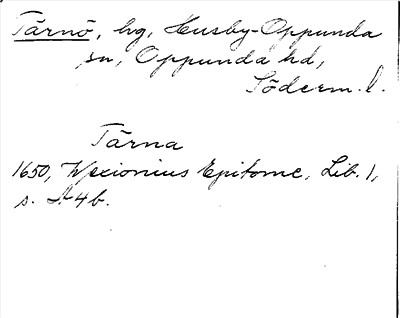 Tärnö, hg, Husby-Oppunda
sn, Oppunda hd,
Söderm. l.
Tärna
1650, Wexionius Epitome, Lib. 1,
s. 4b.